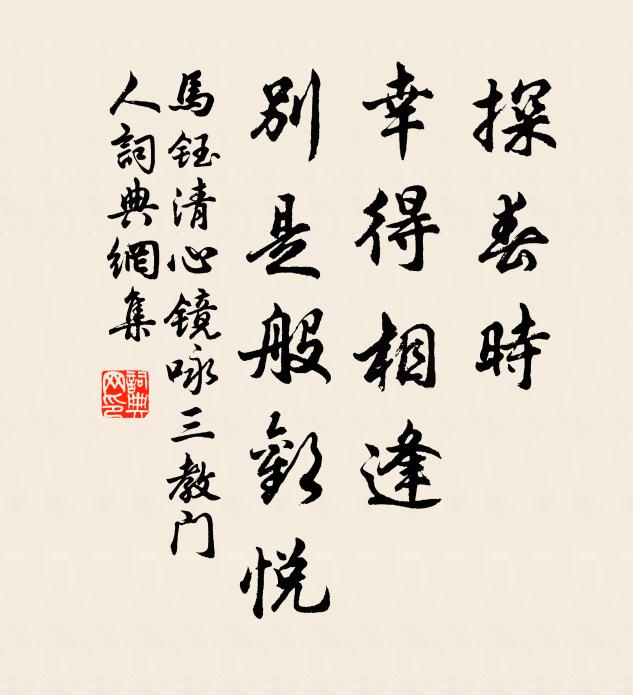 探春時
幸得相逢
別是般歡悅
馬鈺清心鏡咏三教门
人詞典網集
詞典网印